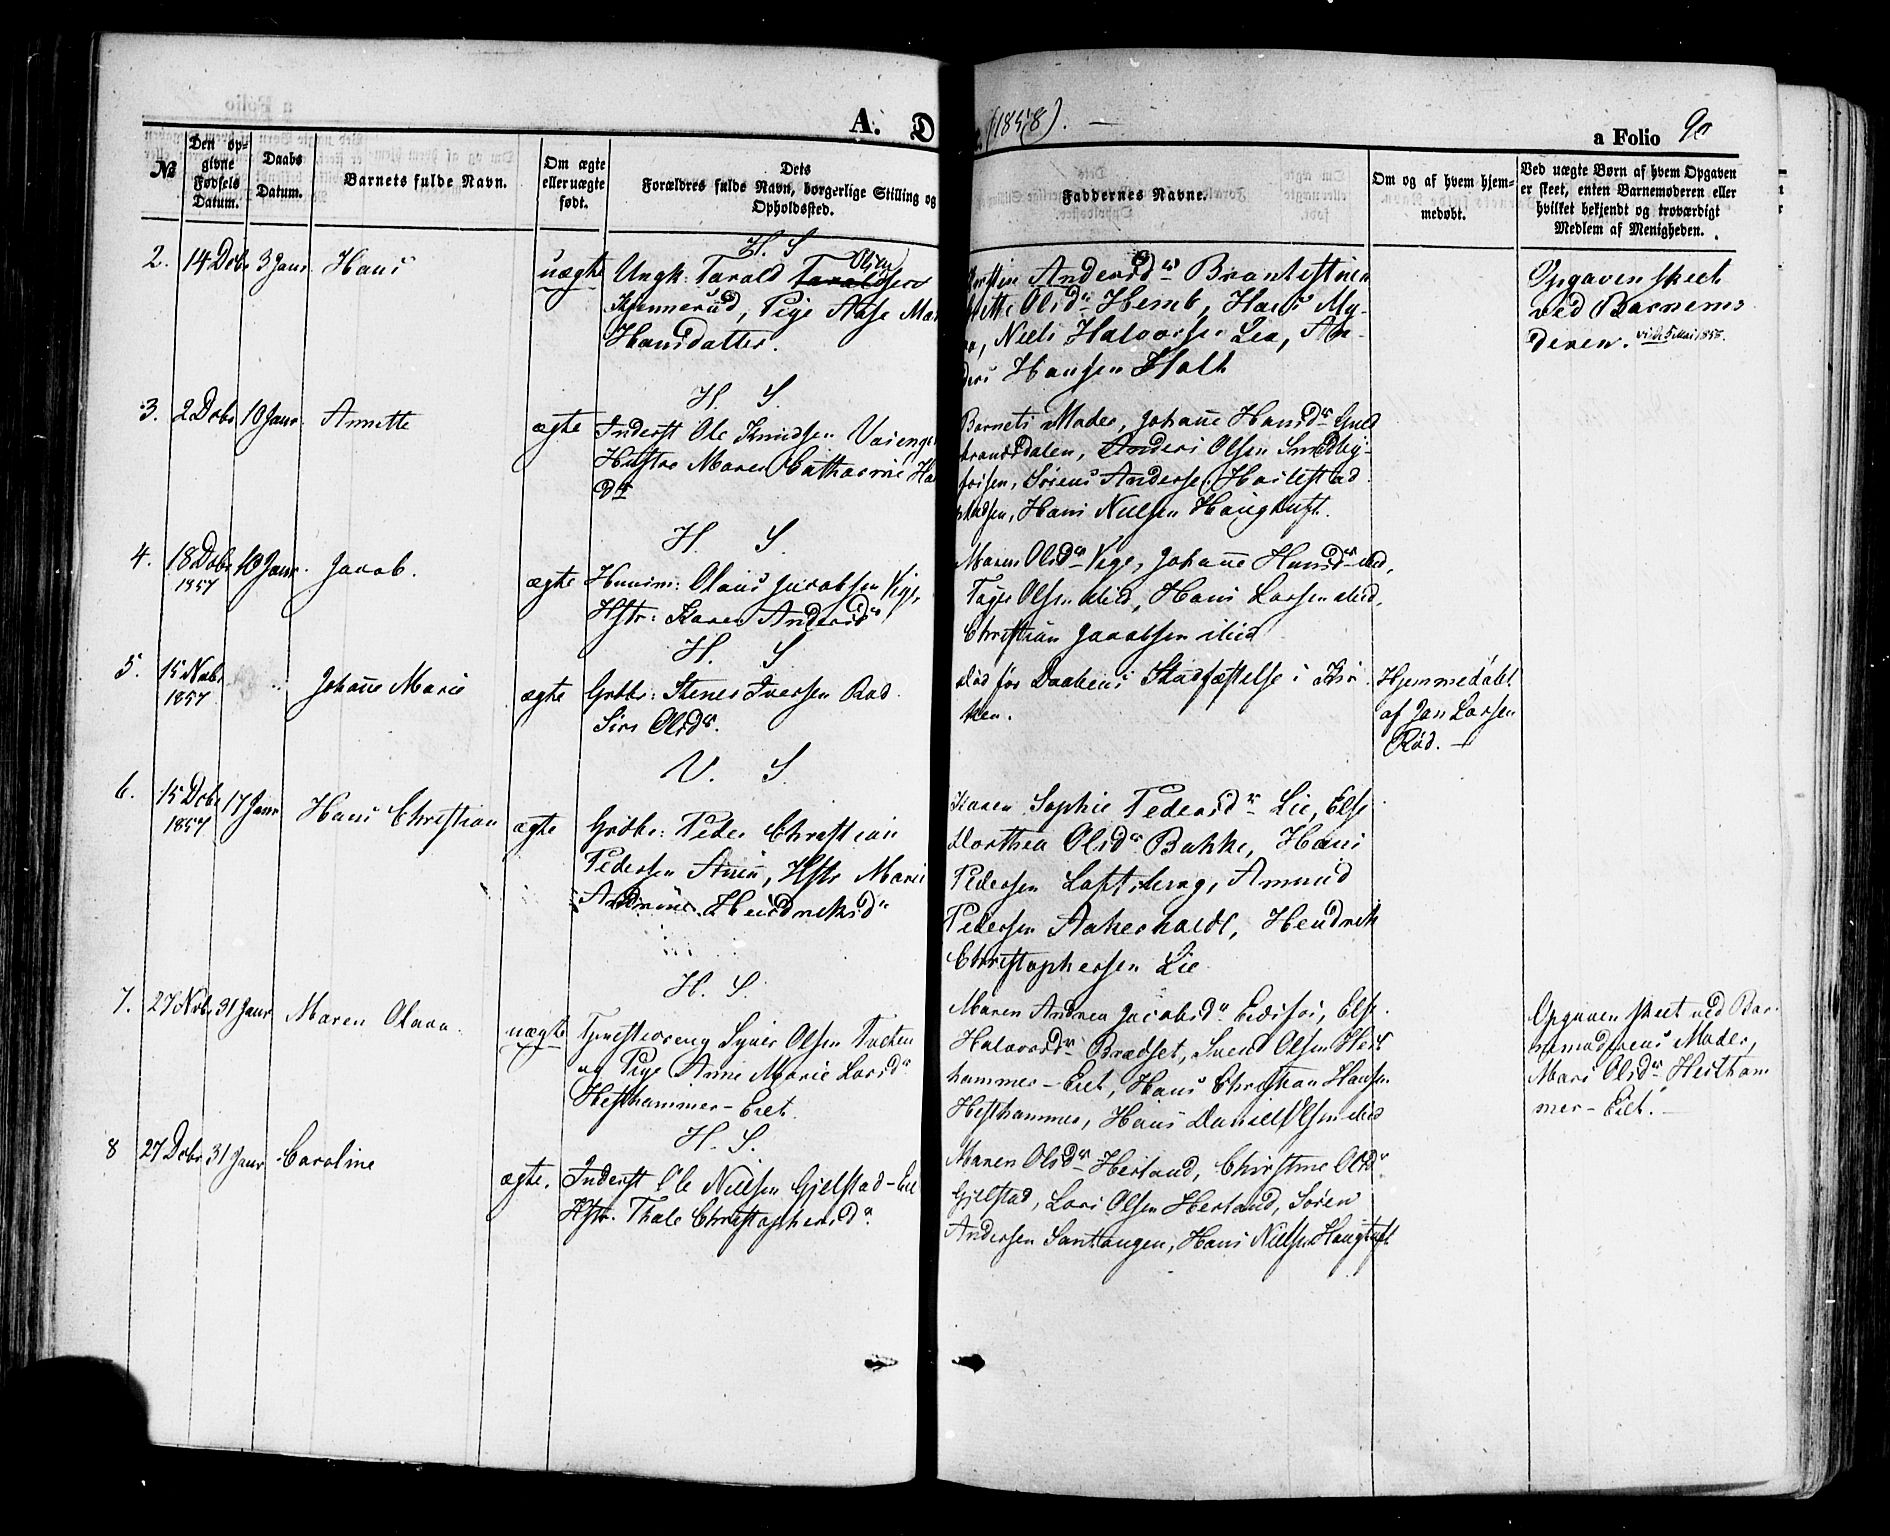 A. D
(1858). —
a Folio 90
№
Den op-
givne
Fødsels
Datum.
Daabs
Datum.
Barnets fulde Navn.
Om ægte
eller uægte
født.
Dets
Forældres fulde Navn, borgerlige Stilling og
Opholdssted.
Faddernes Navne.
Om og af hvem hjem-
medøbt.
Ved uægte Børn af hvem Opgaven
er skeet, enten Barnemoderen eller
hvilket bekjendt og troværdigt
Medlem af Menigheden.
H. S
2. 14 Dcbr 3 Janr Hans uægte Ungk: Tarald Olsen
Kjennerud, Pige Aase Mar
Hansdatter.
Andersdr
Olsdr Hemb, Hans My-
Niels Halvorsen Lea, An-
ders Hansen Holt
Opgaven skeet
ved Barnemo
deren.
H. S.
3. 2 Dcbr 10 Janr Annette ægte Inderst Ole Knudsen
Hustro Maren Catharine Ha
Dtr
Barnets Moder, Johanne Hansdr Guld
brandsdalen, Anders Olsen Smedby-
Andersen
Hans Nielsen Haugtuft.
H. S.
4. 18 Dcbr 10 Janr Jacob. ægte Huusm: Olaus Jacobsen Vige,
1857
Hstr: Karen Andersdr
Maren Olsdr Vige, Johanne Hansdr ibid,
Olsen ibid, Hans Larsen ibid,
Christian Jacobsen ibid
H. S
5. 15 Nvbr Johanne Marie ægte Grdbr: Stener Iversen Rød
1857
Siri Olsdr.
død før Daabens Stadfæstelse i Kir
ken.
Hjemmedøbt
af Jan Larsen
Rød. —
V. S.
6. 15 Dcbr 17 Janr Hans Christian ægte Grdbr: Peder Christian
1857
Pedersen, Hstr Maren
Andrine Hendriksdr
Karen Sophie Pedersdr Lie, Else
Dorthea Olsdr Bakke, Hans
Pedersen Loftsberg, Amund
Pedersen Aakerholdt, Hendrik
Christophersen Lie
H. S.
7. 27 Nvbr 31 Janr Maren Olava uægte Tjenestedreng Syver Olsen Tveten
og Pige Anne Marie Larsdr
Hesthammer-Eiet.
Maren Andrea Jacobsdr, Else
Halvorsdr Brædset, Svend Olsen Hest
hammer-Eiet, Hans Christian Hansen
Hesthammer, Hans Daniel Olsen ibid
Opgaven skeet ved Bar-
nemoderens Moder,
Mari Olsdr Hestham
mer-Eiet. —
H. S.
8 27 Dcbr 31 Janr Caroline ægte. Inderst Ole Nielsen Gjelstad-Eie
Hstr. Thale Christophersdr.
Maren Olsdr Hestand, Christine Olsdr
Gjelstad, Lars Olsen Hestand, Søren
Andersen Santangen, Hans Nielsen Haugtuft